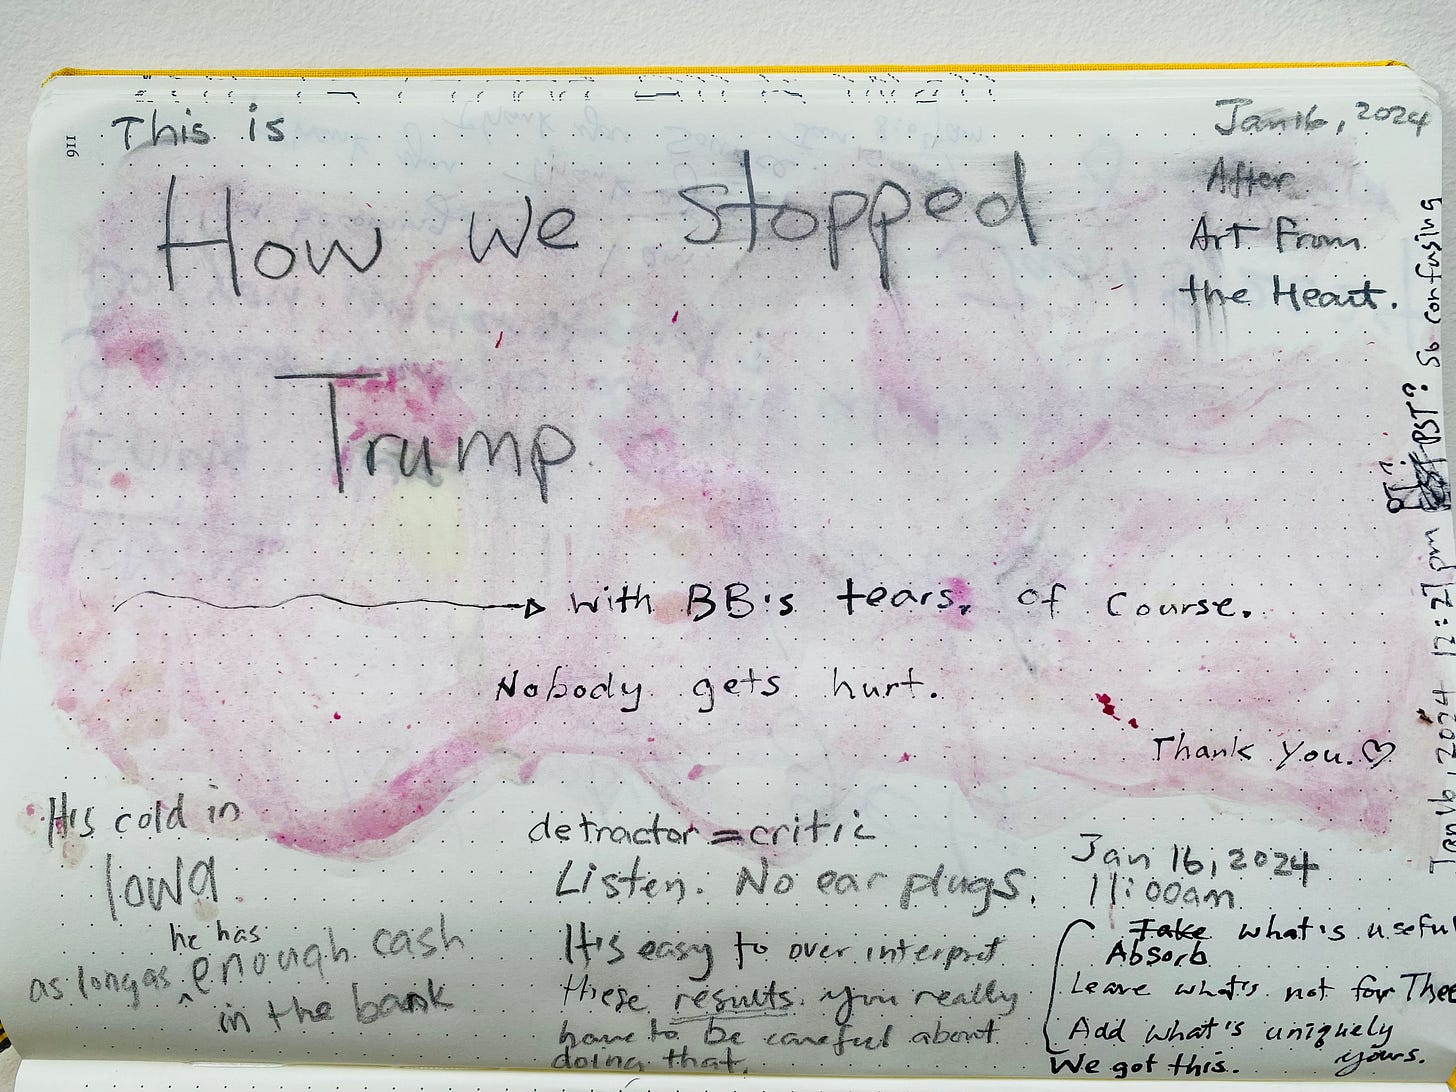 116
This is
How we stopped
Trump
Jan 16, 2024
After
Art From
the Heart.
with BB's tears, of course.
Nobody gets hurt.
Thank you.♡
Jan 16, 2024 12:27pm PST? So confusing
His cold in
Iowa
he has
as long as ^ enough cash
in the bank
detractor = critic
Listen. No ear plugs.
It's easy to over interpret
these results. You really
have to be careful about
doing that.
Jan 16, 2024
11:00am
Take what's useful
Absorb
Leave what's not for Thee
Add what's uniquely
yours.
We got this.